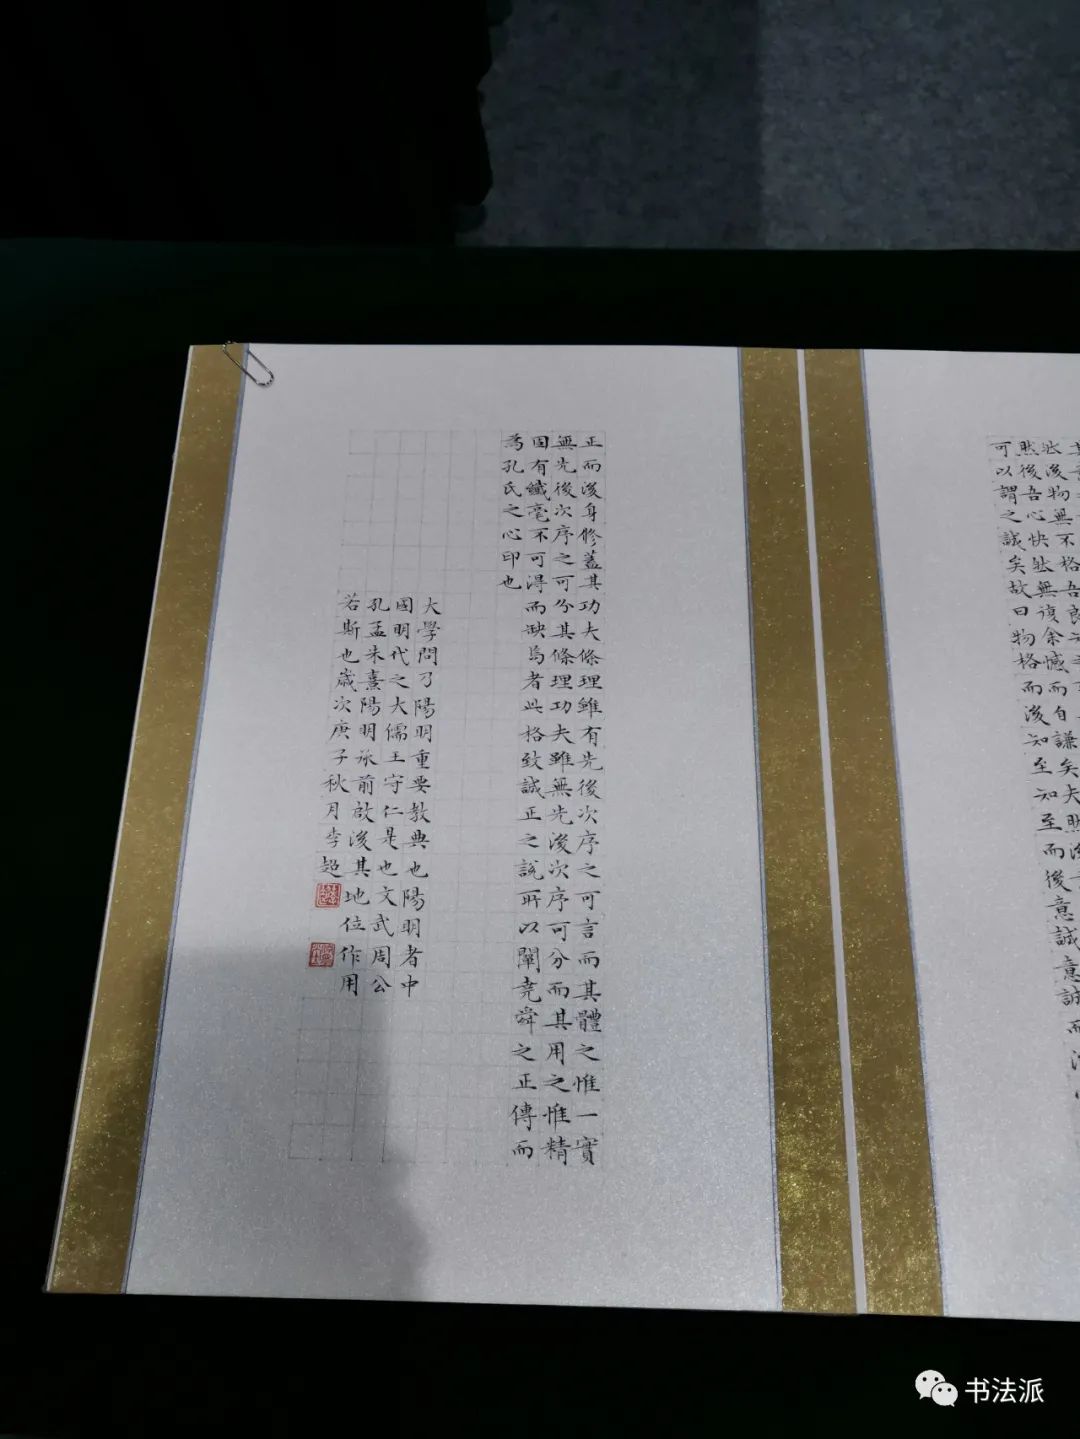 然後物無不格吾良
然後吾心快然無復余憾而自謙矣夫然後
可以謂之誠矣故曰物格而後知至知至而後意誠意誠而後
正而後身修蓋其功夫條理雖有先後次序之可言而其體之惟一實
無先後次序之可分其條理功夫雖無先後次序可分而其用之惟精
固有纖毫不可得而缺焉者此格致誠正之説所以闡堯舜之正傳而
為孔氏之心印也
大學問乃陽明重要教典也陽明者中
國明代之大儒王守仁是也文武周公
孔孟朱熹陽明承前啟後其地位作用
若斯也歲次庚子秋月李超
书法派